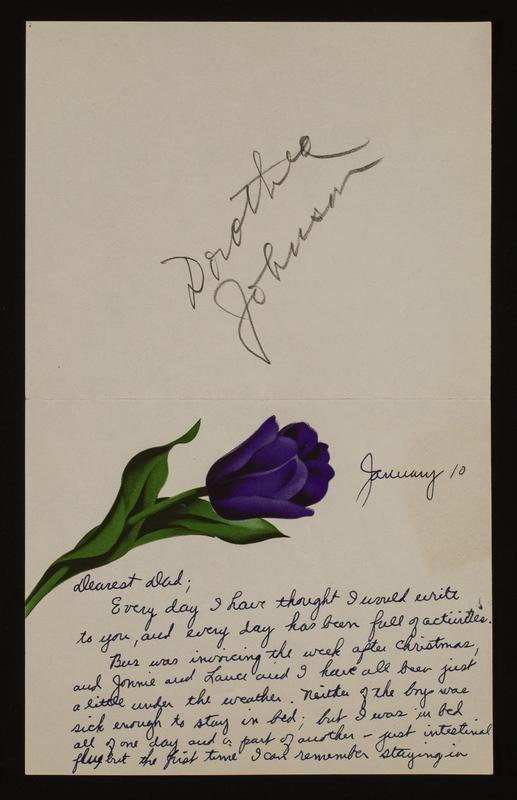 Dorothea
Johnson
January 10
Dearest Dad;
Every day I have thought I would write
to you, and every day has been full of activities.
Bus was invoicing the week after Christmas,
and Jonnie and Lance and I have all been just
a little under the weather. Neither of the boys was
sick enough to stay in bed; but I was in bed
all of one day and a part of another - just intestinal
flu, but the first time I can remember staying in